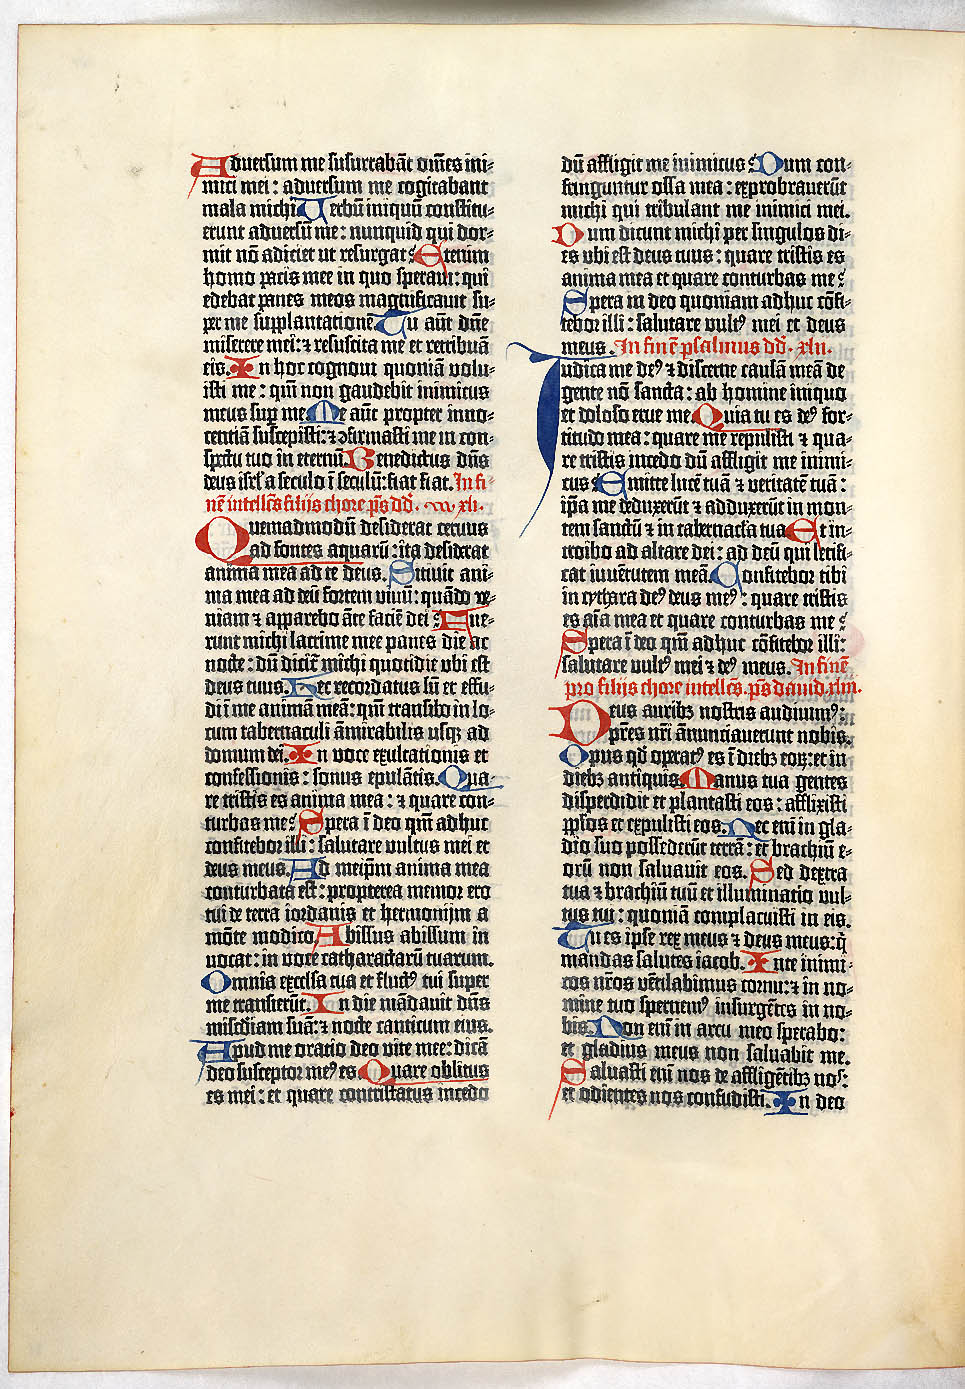 Aduersum me susurrabāt om̄es ini⸗
mici mei : aduersum me cogitabant
mala michi Uerbū iniquū constitu⸗
erunt aduersū me : nunquid qui dor⸗
mit nō adiciet ut resurgat⸵ Etenim
homo pacis mee in quo speraui : qui
edebat panes meos magnificauit su⸗
per me supplantationē Tu aūt dn̄e
miserere mei : ⁊ resuscita me et retribuā
eis. In hoc cognoui quoniā uolu⸗
isti me : qm̄ non gaudebit inimicus
meus sup me Me aūt propter inno⸗
centiā suscepisti : ⁊ ꝯfirmasti me in con⸗
spectu tuo in eternū. Benedictus dn̄s
deus isrl̓ a seculo ī seculū : fiat fiat. In fi⸗
nē intellc̄s filijs chore ps̄ dd̄. xli.
Quemadmodū desiderat ceruus
ad fontes aquarū : ita desiderat
anima mea ad te deus. Sitiuit ani⸗
ma mea ad deū fortem uiuū : quādo ve⸗
niam ⁊ apparebo āte faciē dei⸵ Fue⸗
runt michi lacrime mee panes die ac
nocte : dū dicit̄ michi quotidie vbi est
deus tuus. Hec recordatus sū et effu⸗
di ī me animā meā : qm̄ transibo in lo⸗
cum tabernaculi āmirabilis usqꝫ ad
domum dei. In voce exultationis et
confessionis : sonus epulātis. Qua⸗
re tristis es anima mea : ⁊ quare con⸗
turbas me⸵ Spera ī deo qm̄ adhuc
confitebor illi : salutare uultus mei et
deus meus. Ad meip̄m anima mea
conturbata est : propterea memor ero
tui de terra iordanis et hermonijm a
mōte modico Abissus abissum in
uocat : in uoce catharactarū tuarum.
Omnia excelsa tua et fluctꝰ tui super
me transierūt. In die mādauit dn̄s
misc̄diam suā : ⁊ nocte canticum eius.
Apud me oratio deo vite mee : dicā
deo susceptor meꝰ es Quare oblitus
es mei : et quare contristatus incedo
dū affligit me inimicus⸵ Dum con⸗
fringuntur ossa mea : exprobrauerūt
michi qui tribulant me inimici mei.
Dum dicunt michi per singulos di⸗
es vbi est deus tuus : quare tristis es
anima mea et quare conturbas me⸵
Spera in deo quoniam adhuc cōfi⸗
tebor illi : salutare uultꝰ mei et deus
meus. In finē psalmus dd̄. xlii.
Iudica me deꝰ ⁊ discerne causā meā de
gente nō sancta : ab homine iniquo
et doloso erue me Quia tu es deꝰ for⸗
titudo mea : quare me repulisti ⁊ qua⸗
re tristis incedo dū affligit me inimi⸗
cus⸵ Emitte lucē tuā ⁊ veritatē tuā :
ip̄a me deduxerūt ⁊ adduxerūt in mon⸗
tem sanctū ⁊ in tabernacl̓a tua Et in⸗
troibo ad altare dei : ad deū qui letifi⸗
cat iuuētutem meā Confitebor tibi
in cythara deꝰ deus meꝰ : quare tristis
es aīa mea et quare conturbas me⸵
Spera ī deo qm̄ adhuc cōfitebor illi :
salutare uultꝰ mei ⁊ deꝰ meus. In finē
pro filijs chore intellc̄s. ps̄ dauid. xliii.
Deus auribꝫ nostris audiuimꝰ :
pr̄es nr̄i ānunciauerunt nobis.
Opus qd̄ operatꝰ es ī diebꝫ eoꝝ : et in
diebꝫ antiquis. Manus tua gentes
disperdidit et plantasti eos : afflixisti
pplos et expulisti eos. Nec eni in gla⸗
dio suo possederūt terrā : et brachiū e⸗
orū non saluauit eos. Sed dextra
tua ⁊ brachiū tuū et illuminatio vul⸗
tus tui : quoniā complacuisti in eis.
Tu es ipse rex meus ⁊ deus meus : q̄
mandas salutes iacob. In te inimi⸗
cos nr̄os vētilabimus cornu : ⁊ in no⸗
mine tuo spernemꝰ insurgētes in no⸗
bis. Non eni in arcu meo sperabo :
et gladius meus non saluabit me.
Saluasti eni nos de affligētibꝫ nos :
et odientes nos confudisti. In deo